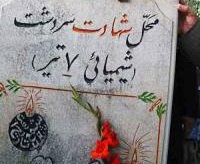 محل شهادت سردشت
(شیمیائی ۷ تیر)